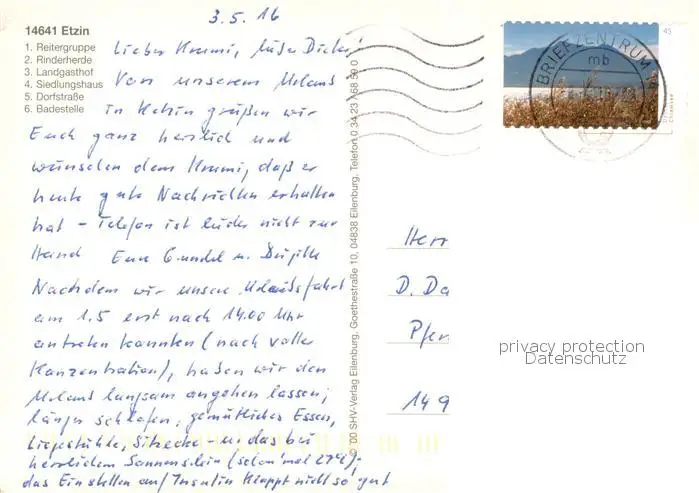 3.5.16
14641 Etzin
1. Reitergruppe
2. Rinderherde
3. Landgasthof
4. Siedlungshaus
5. Dorfstraße
6. Badestelle
Lieber Krumi, liebe
Von unserem Urlaub
in Ketzin grüßen wir
Euch ganz herzlich und
wünschen dem Krumi, daß er
heute gute Nachrichten erhalten
hat - Telefon ist leider nicht zur
Hand Eure Gundel u.
Nachdem wir unsere Urlaubsfahrt
am 1.5 erst nach 14.00 Uhr
antreten konnten (nach voller
Konzentration), haben wir den
Urlaub langsam angehen lassen;
länger schlafen, gemütliches Essen,
Liegestühle, Strecke - u. das bei
herrlichem Sonnenschein (schon mal 27°);
das Einstellen auf Insulin klappt nicht so gut
© 00 SHV-Verlag Eilenburg, Goethestraße 10, 04838 Eilenburg, Telefon 0 34 23 / 68 59 0
BRIEFZENTRUM
mb
45
Herr
D. Da
Pfer
149
privacy protection
Datenschutz